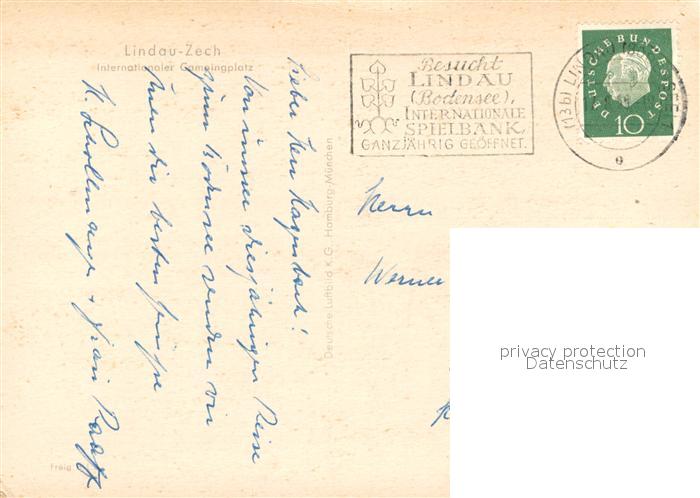 Lindau-Zech
Internationaler Campingplatz
Besucht
LINDAU
(Bodensee),
INTERNATIONALE
SPIELBANK,
GANZJÄHRIG GEÖFFNET.
(13b) LINDAU
e
DEUTSCHE BUNDESPOST
10
Lieber Herr Hagenbach!
Von unserer diesjährigen Reise
zum Bodensee senden wir
Ihnen die besten Grüße
H. u. Frau
Deutsche Luftbild K.G. Hamburg-München
Herrn
Werner
privacy protection
Datenschutz
Freig